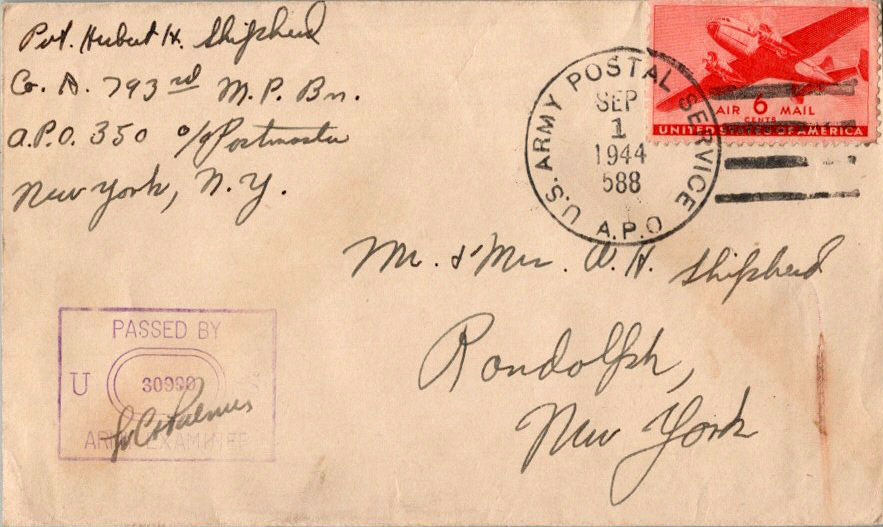 Pvt. Hubert H. Shipherd
Co. A. 793rd M.P. Bn.
A.P.O. 350 c/o Postmaster
New York, N.Y.
U.S. ARMY POSTAL SERVICE
SEP
1
1944
588
A.P.O
AIR 6 MAIL
CENTS
UNITED STATES OF AMERICA
Mr. & Mrs. A. H. Shipherd
Randolph,
New York
PASSED BY
U
ARMY EXAMINER